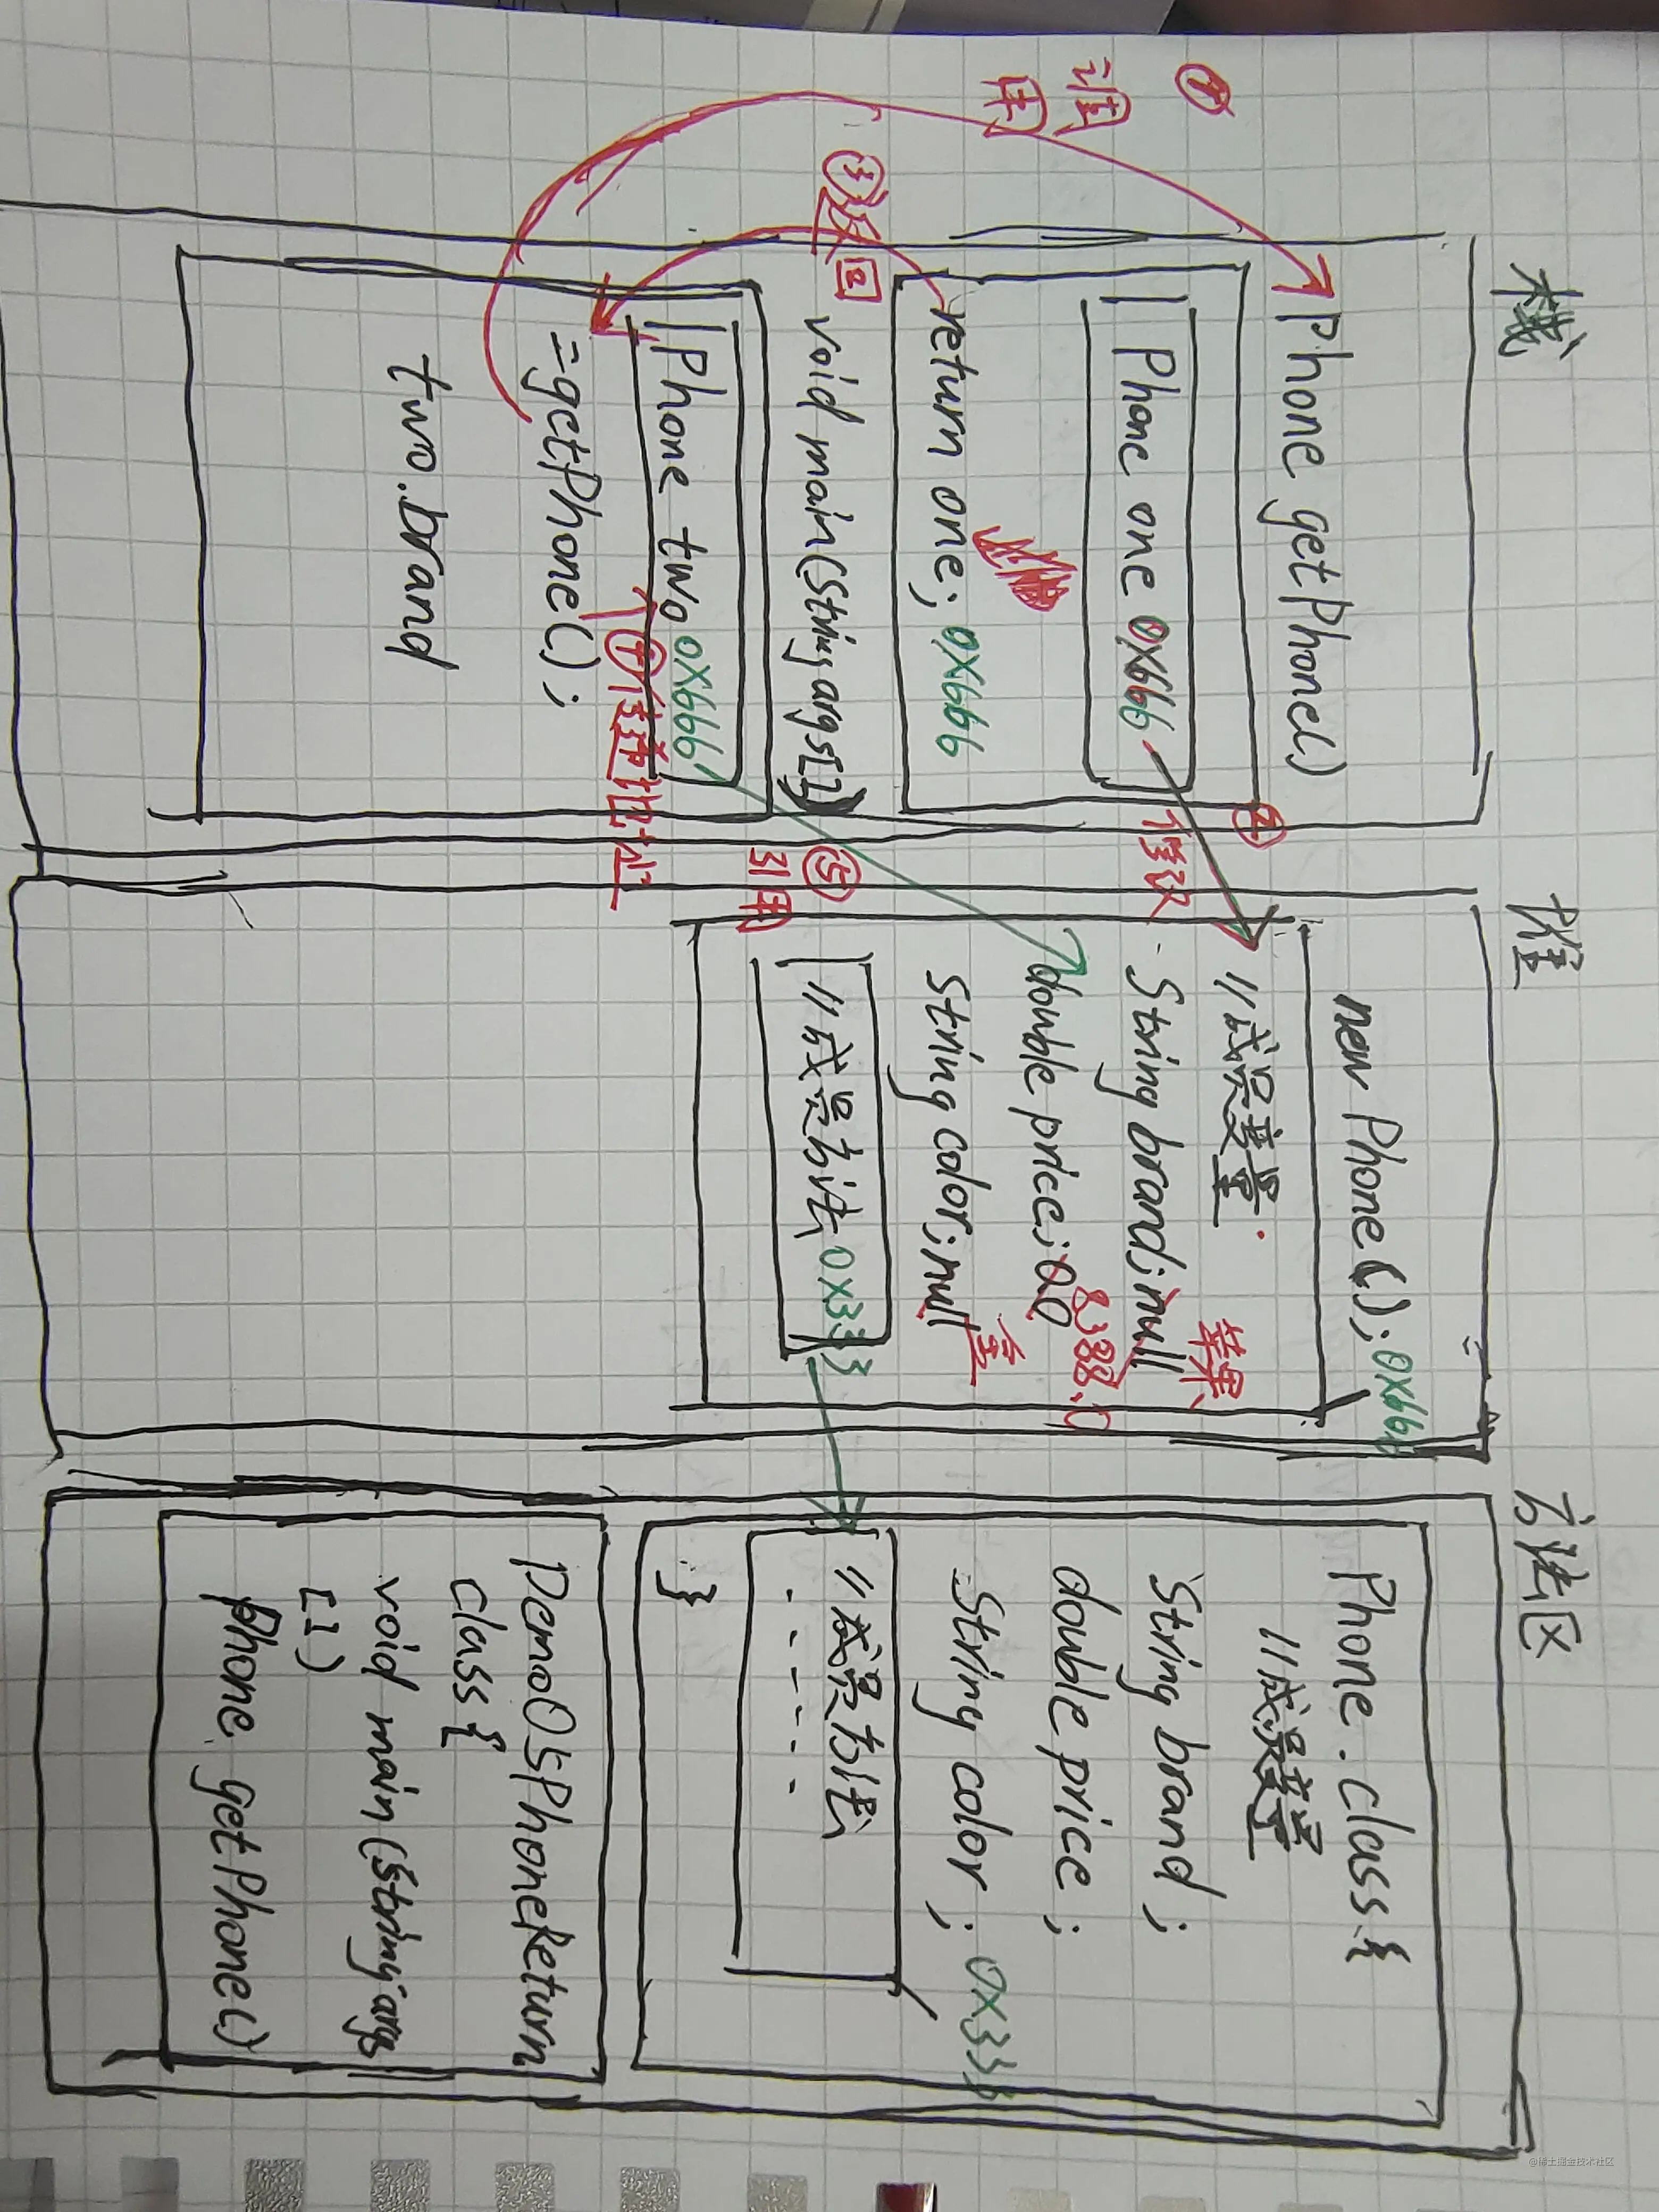 栈
Phone getPhone()
Phone one 0x666
return one; 0x666
void main(String args[])
Phone two 0x666
=getPhone();
two.brand
① 调用
② 修改
③ 返回
④ 传递地址
⑤ 引用
堆
new Phone(); 0x666
//成员变量
String brand; null 苹果
double price; 0.0 8388.0
String color; null
//成员方法 0x333
方法区
Phone.class{
//成员变量
String brand;
double price;
String color; 0x333
//成员方法
- - - - -
}
Demo05PhoneReturn
class{
void main(String args
[])
Phone getPhone()
@稀土掘金技术社区